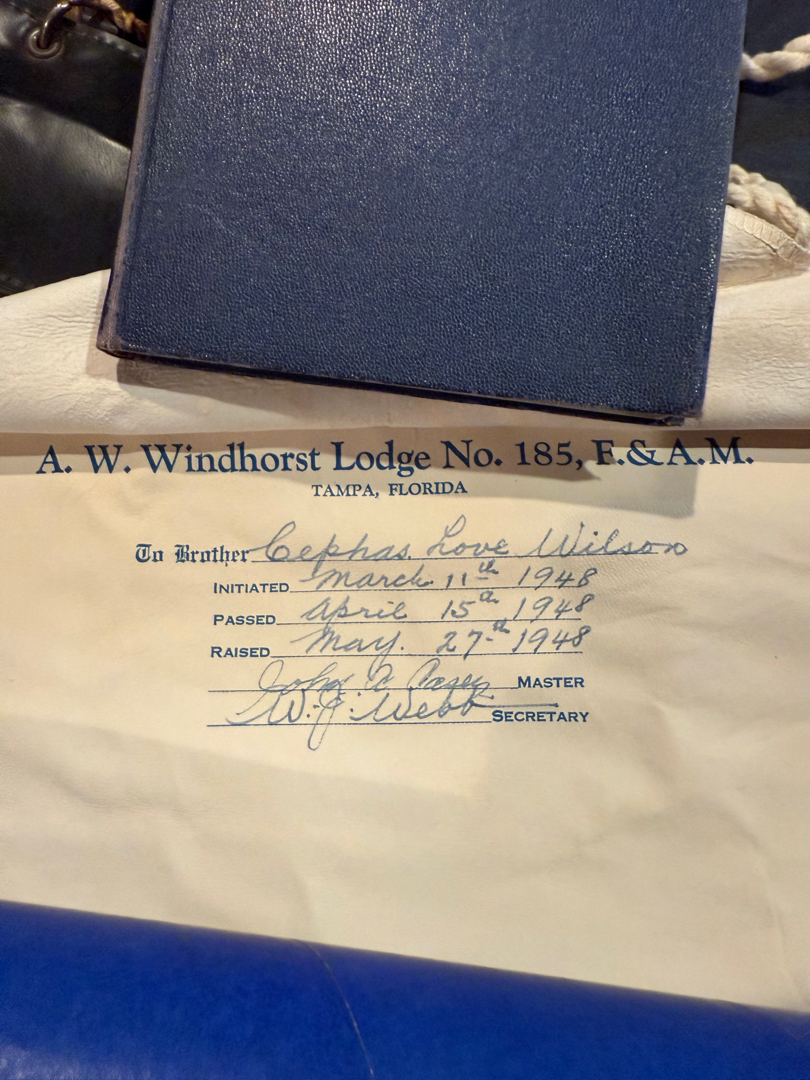 A. W. Windhorst Lodge No. 185, F. & A. M.
TAMPA, FLORIDA
To Brother Cephas Love Wilson
INITIATED March 11th 1948
PASSED April 15th 1948
RAISED May. 27th 1948
John MASTER
W. J. Webb SECRETARY